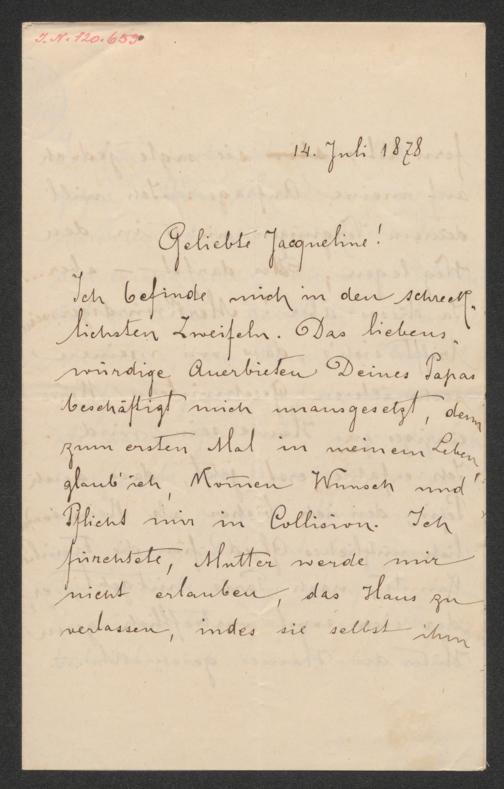 J.N. 120.653
14. Juli 1878
Geliebte Jacqueline!
Ich befinde mich in den schreck-
lichsten Zweifeln. Das liebens-
würdige Anerbieten Deines Papas
beschäftigt mich unausgesetzt, denn
zum ersten Mal in meinem Leben,
glaub' ich, kom̅en Wunsch und
Pflicht mir in Collision. Ich
fürchtete, Mutter werde mir
nicht erlauben, das Haus zu
verlassen, indes sie selbst ihm